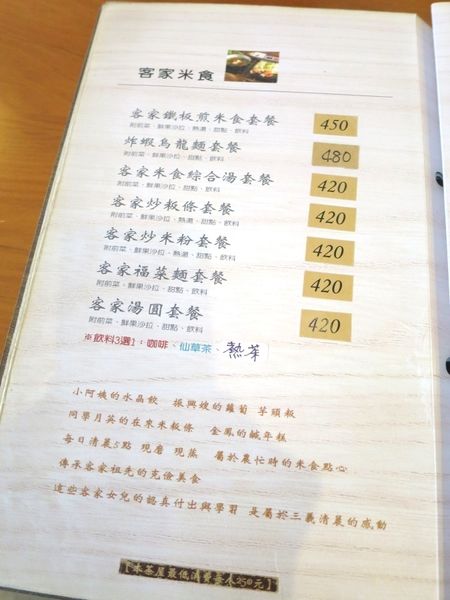 客家米食
客家鐵板煎米食套餐 450
附前菜、鮮果沙拉、熱湯、甜點、飲料
炸蝦烏龍麵套餐 480
附前菜、鮮果沙拉、甜點、飲料
客家米食綜合湯套餐 420
附前菜、鮮果沙拉、甜點、飲料
客家炒粄條套餐 420
附前菜、鮮果沙拉、熱湯、甜點、飲料
客家炒米粉套餐 420
附前菜、鮮果沙拉、熱湯、甜點、飲料
客家福菜麵套餐 420
附前菜、鮮果沙拉、甜點、飲料
客家湯圓套餐 420
附前菜、鮮果沙拉、甜點、飲料
※飲料3選1:咖啡、仙草茶、熱茶
小阿姨的水晶餃 振興嫂的蘿蔔 芋頭粄
同學月英的在來米粄條 金鳳的鹹年糕
每日清晨5點 現磨 現蒸 屬於農忙時的米食點心
傳承客家祖先的克儉美食
這些客家女兒的認真付出與學習 是屬於三義清晨的感動
【本茶屋最低消費每人250元】